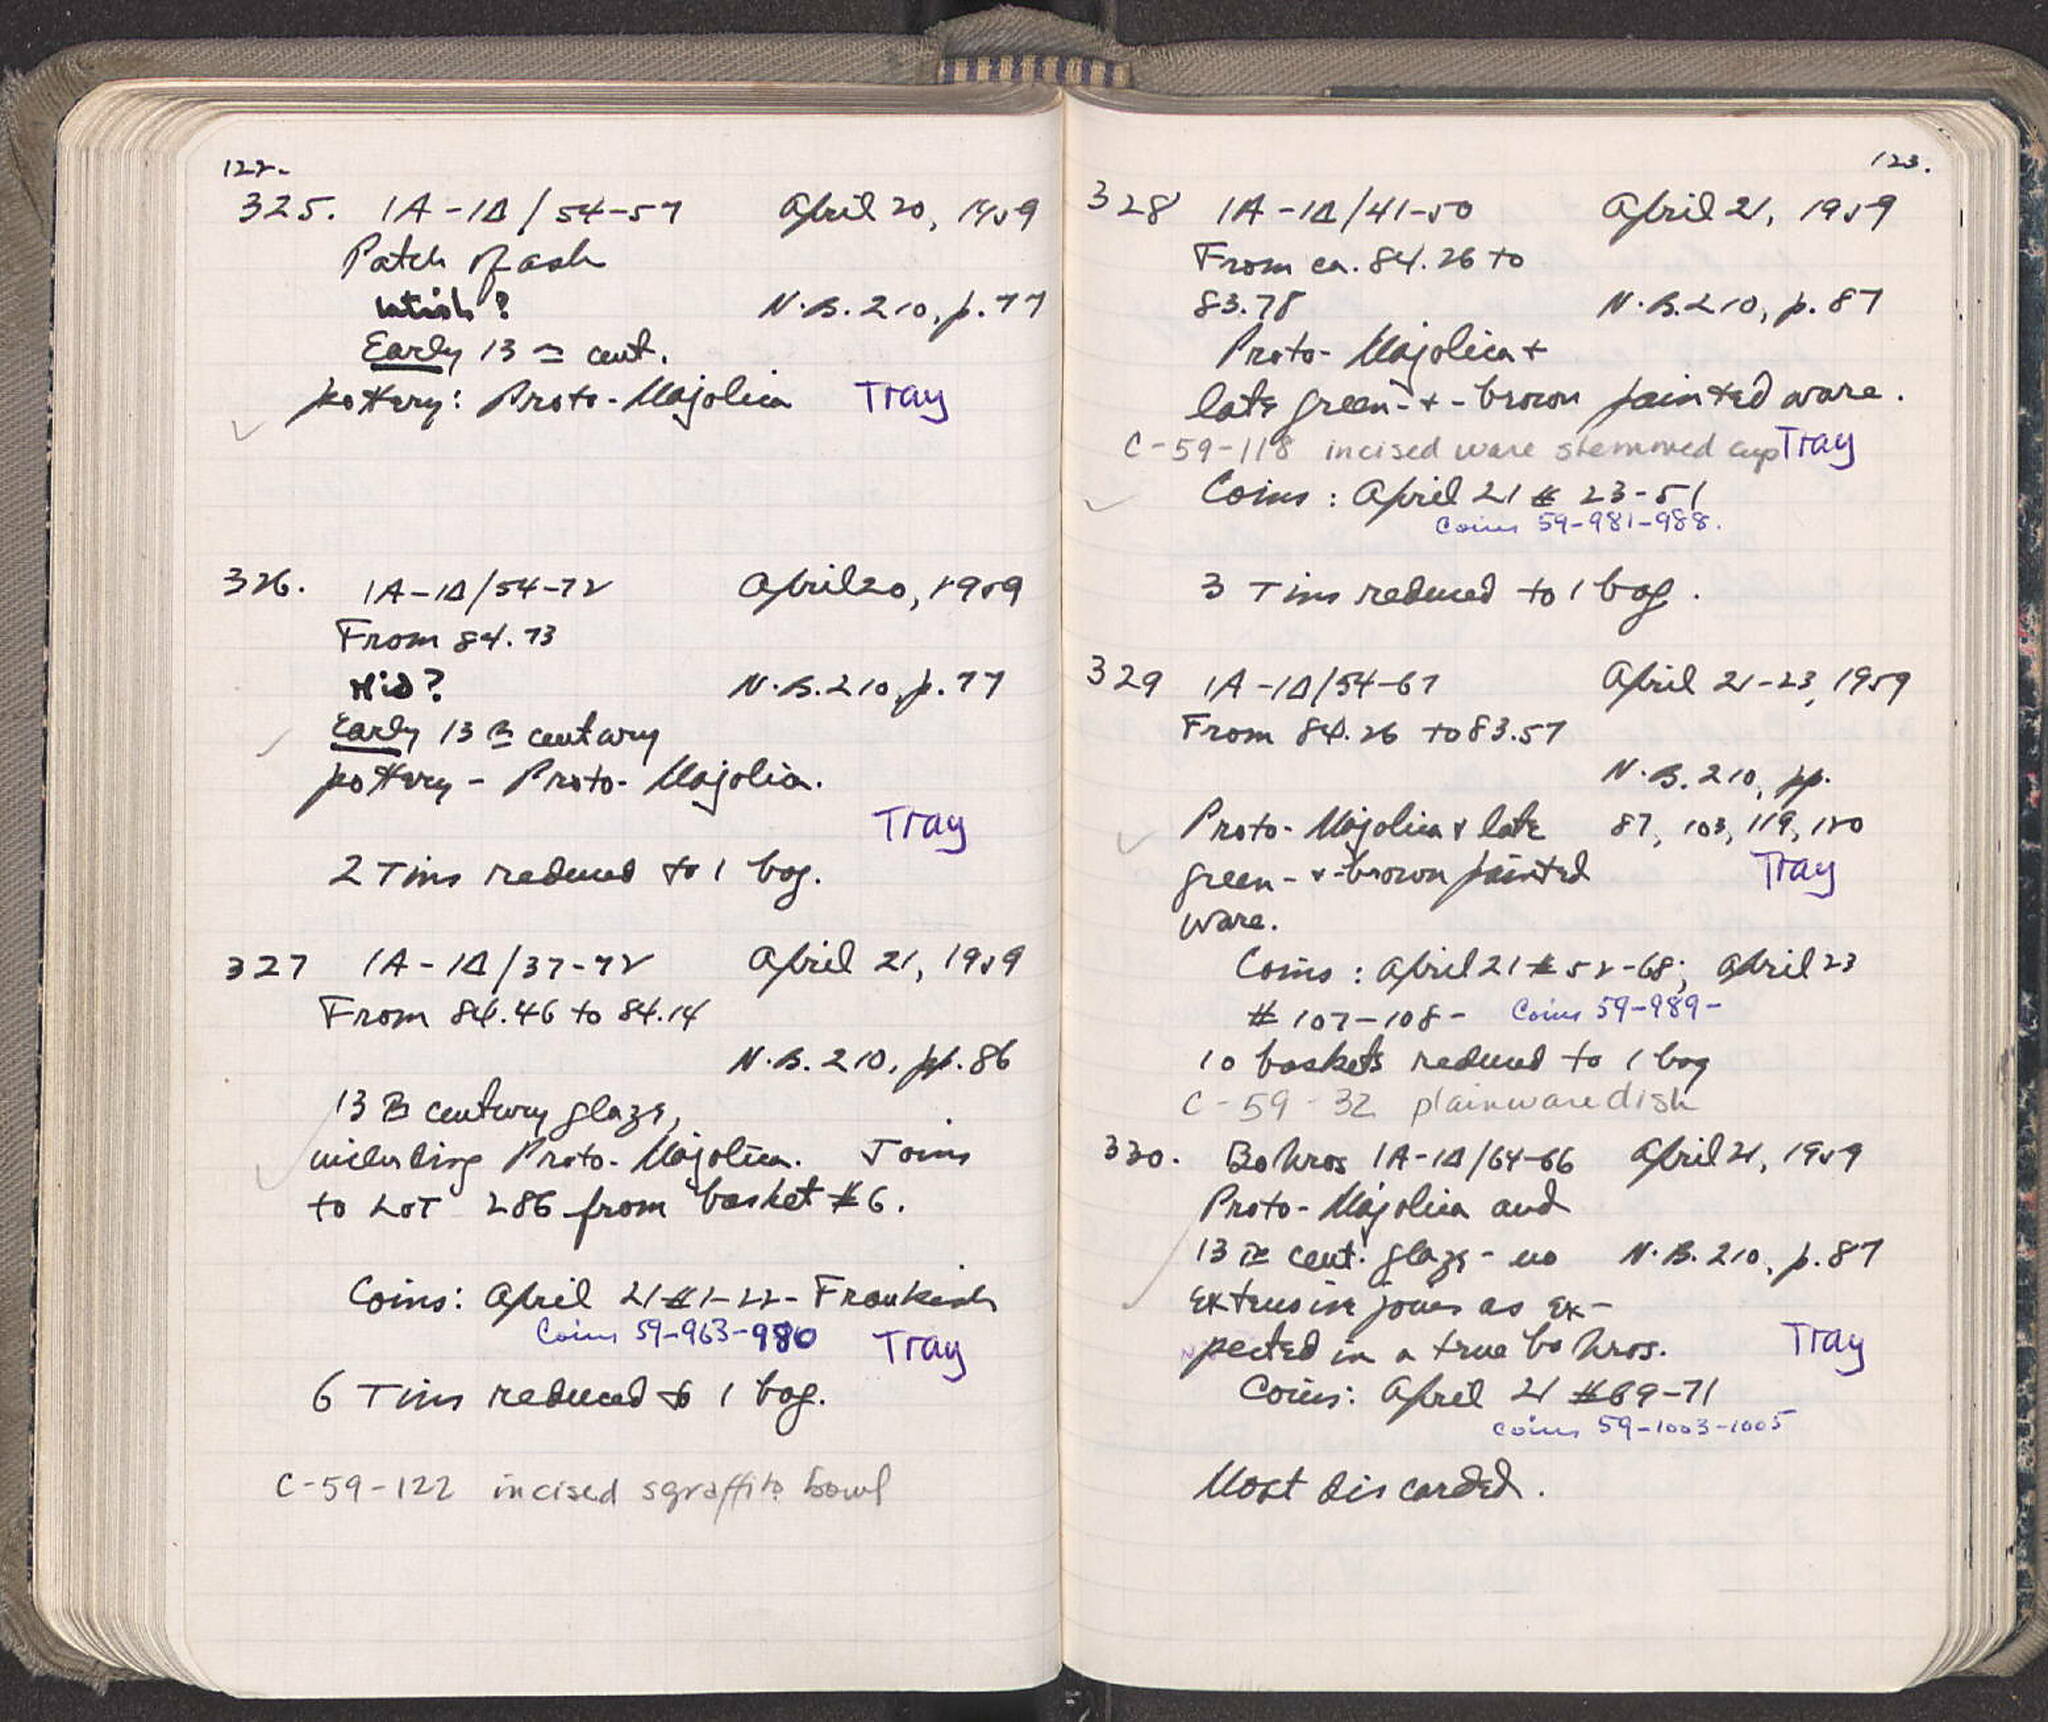 122.
325. 1A-1Δ/54-57 April 20, 1959
Patch of ash
N.B. 210, p. 77
Early 13th cent.
pottery: Proto-Majolica Tray
326. 1A-1Δ/54-72 April 20, 1959
From 84.73
Mid? N.B. 210, p. 77
Early 13th century
pottery - Proto-Majolica.
Tray
2 Tins reduced to 1 bag.
327 1A-1Δ/37-72 April 21, 1959
From 84.46 to 84.14
N.B. 210, pp. 86
13th century glaze,
including Proto-Majolica. Joins
to LOT 286 from basket #6.
Coins: April 21 #1-22 - Frankish
Coins 59-963-980 Tray
6 Tins reduced to 1 bag.
C-59-122 incised sgraffito bowl
123.
328 1A-1Δ/41-50 April 21, 1959
From ca. 84.26 to
83.78 N.B. 210, p. 87
Proto-Majolica +
late green-+-brown painted ware.
C-59-118 incised ware stemmed cup Tray
Coins: April 21 # 23-51
Coins 59-981-988.
3 Tins reduced to 1 bag.
329 1A-1Δ/54-67 April 21-23, 1959
From 84.26 to 83.57
N.B. 210, pp.
Proto-Majolica + late 87, 103, 119, 120
green-+-brown painted Tray
ware.
Coins: April 21 # 52-68; April 23
# 107-108 - Coins 59-989-
10 baskets reduced to 1 bag
C-59-32 plainware dish
330. Bothros 1A-1Δ/64-66 April 21, 1959
Proto-Majolica and
13th cent. glaze - no N.B. 210, p. 87
extensive joins as ex-
pected in a true bothros. Tray
Coins: April 21 #69-71
Coins 59-1003-1005
Most discarded.